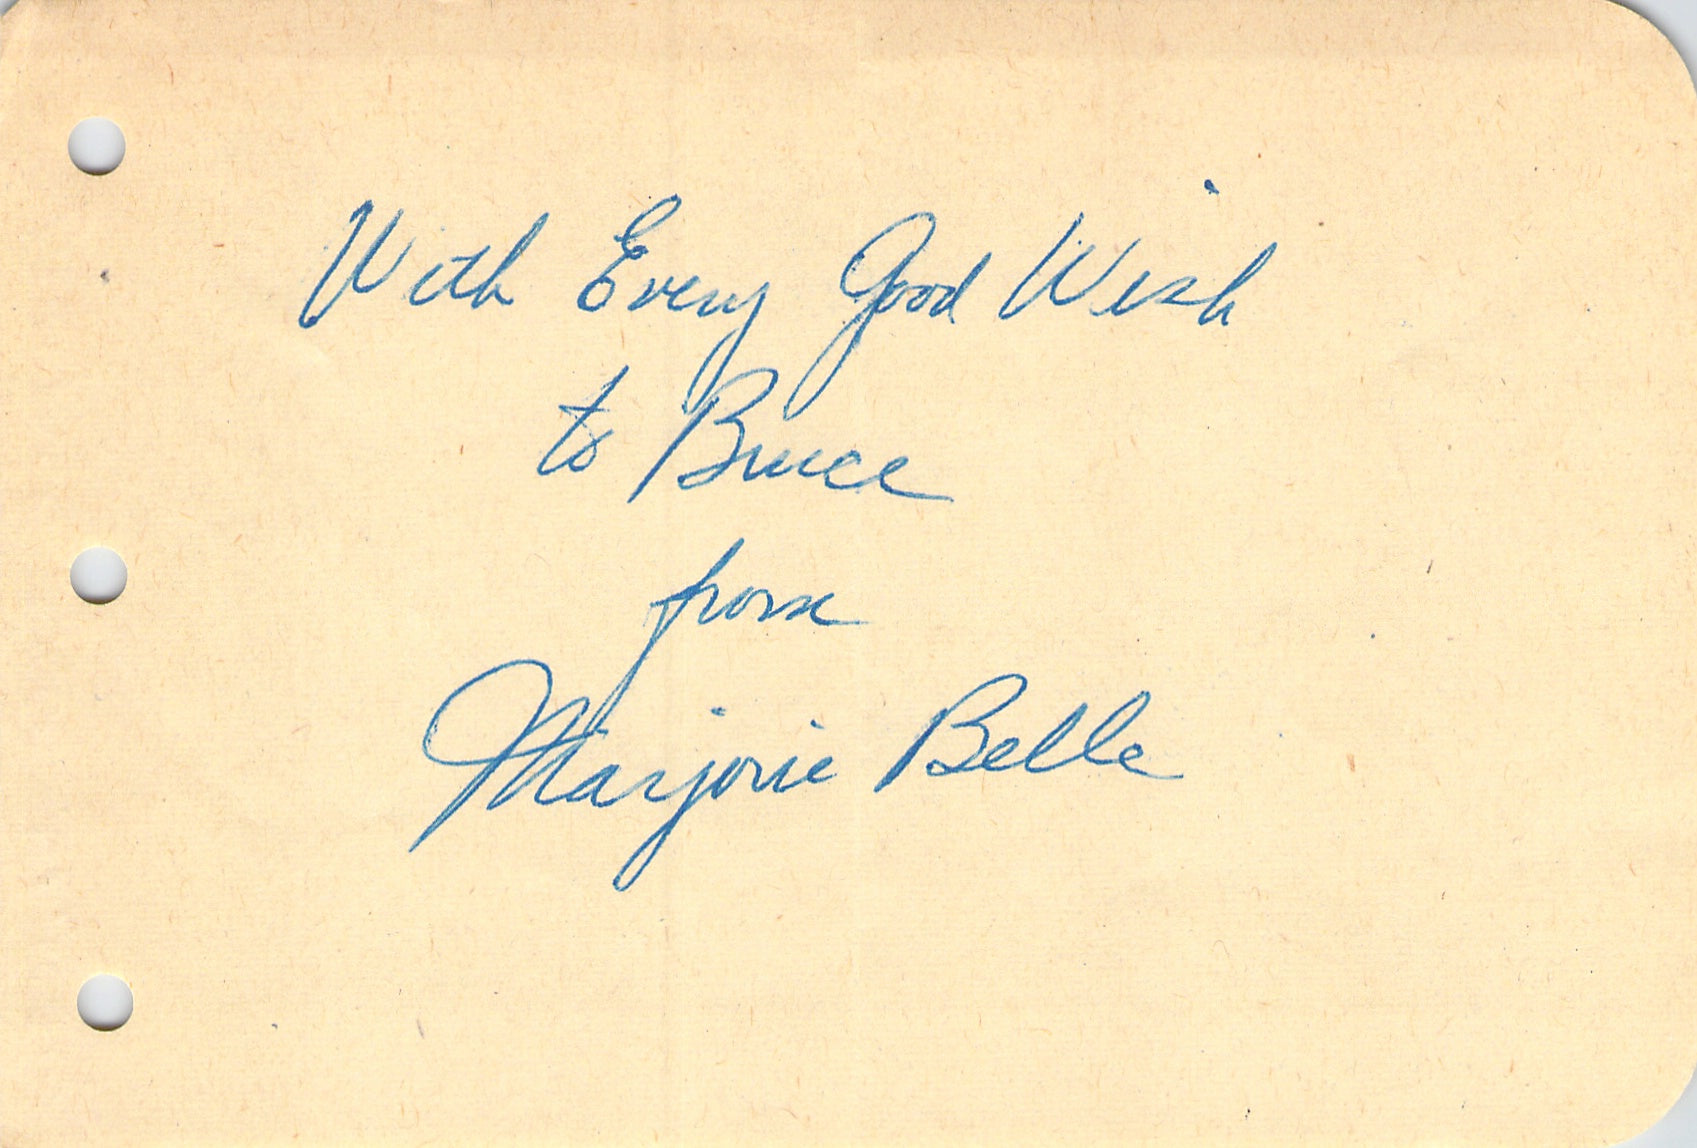 With Every Good Wish
to Bruce
from
Marjorie Belle